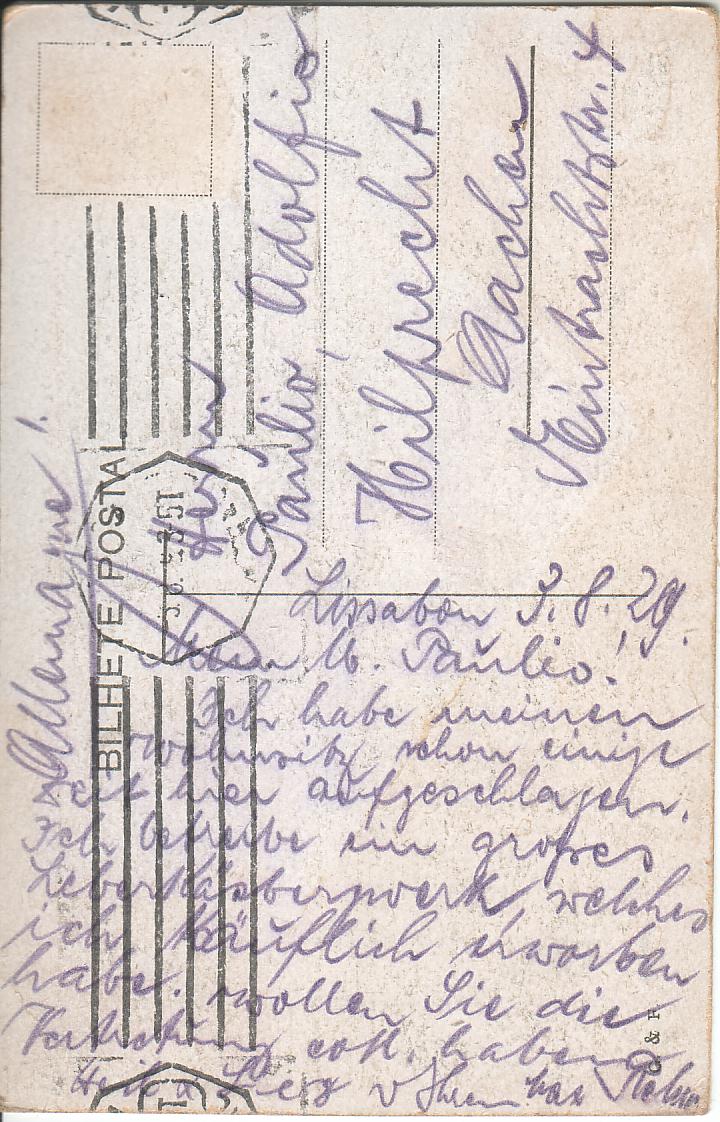 BILHETE POSTAL
Allemagne!
Herrn
Paulio Adolfio
Hilprecht
Aachen
Eintrachtstr. 4
Lissabon 3.8.29.
Mein M. Paulio!
Ich habe meinen
Wohnsitz schon einige
Zeit hier aufgeschlagen.
Ich betreibe ein großes
Leberkäsbergwerk, welches
ich käuflich erworben
habe. Wollen Sie die
Vertretung evtl. haben
Heil u Sieg v Ihrem